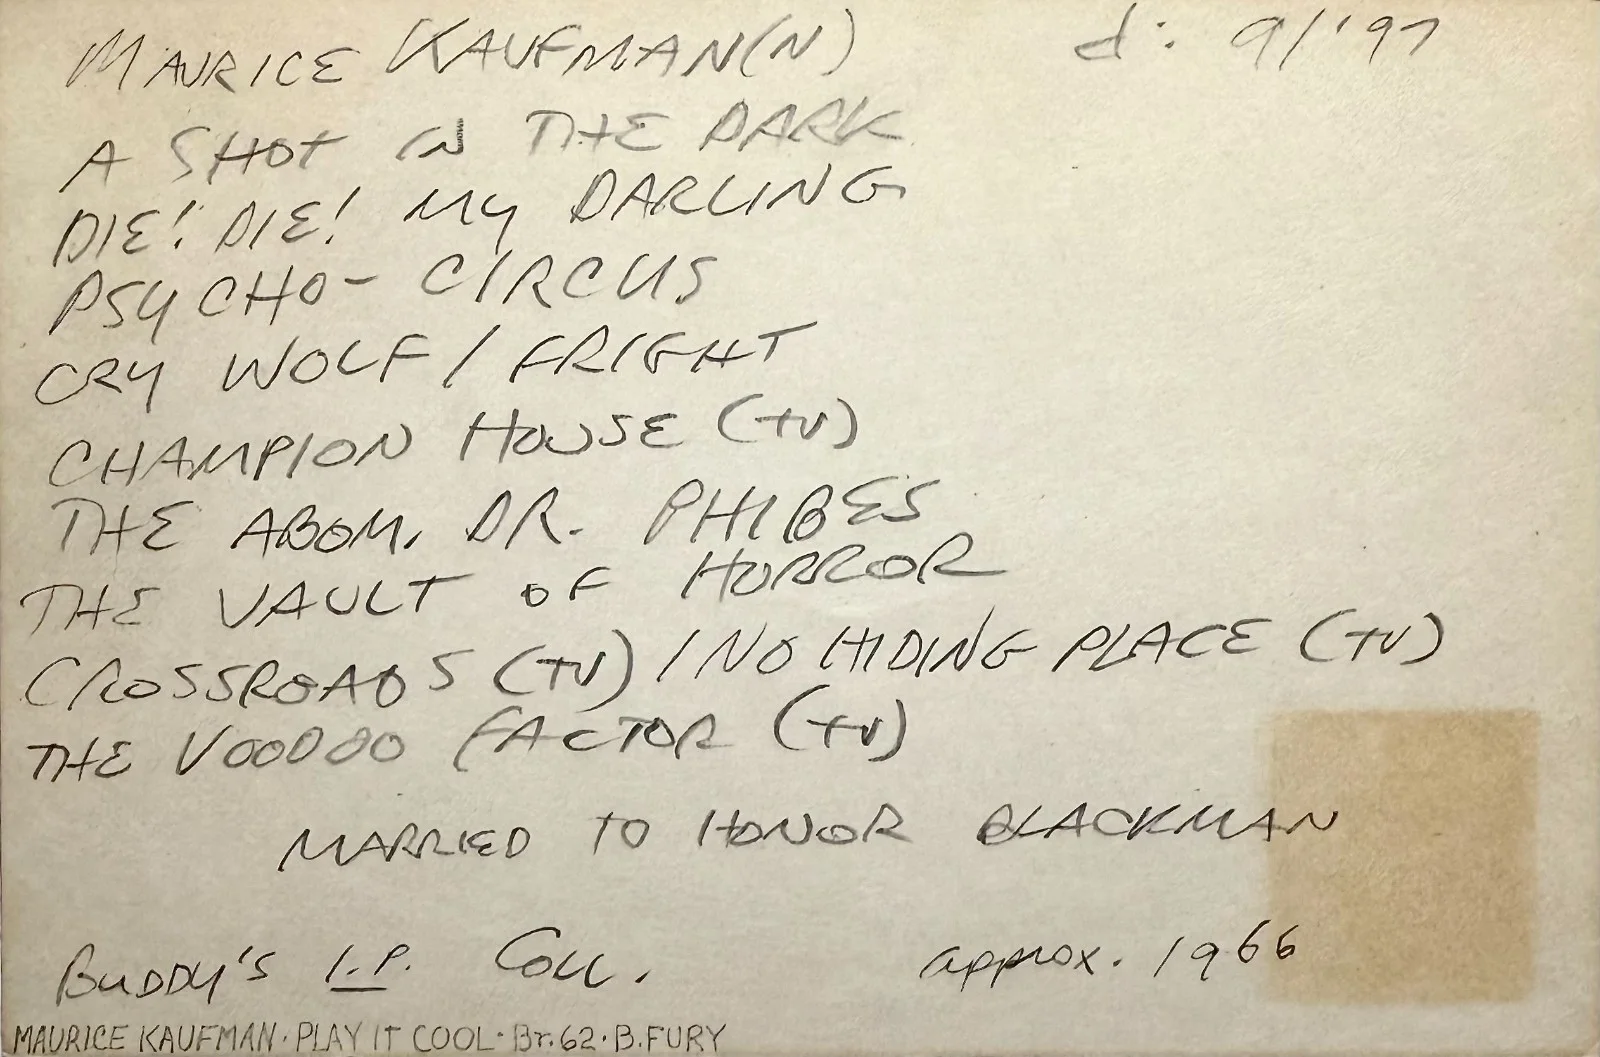 MAURICE KAUFMAN(N) d: 9/'97
A SHOT IN THE DARK
DIE! DIE! MY DARLING
PSYCHO-CIRCUS
CRY WOLF / FRIGHT
CHAMPION HOUSE (TV)
THE ABOM. DR. PHIBES
THE VAULT OF HORROR
CROSSROADS (TV) / NO HIDING PLACE (TV)
THE VOODOO FACTOR (TV)
MARRIED TO HONOR BLACKMAN
BUDDY'S I.P. COLL. approx. 1966
MAURICE KAUFMAN · PLAY IT COOL · Br. 62 · B. FURY